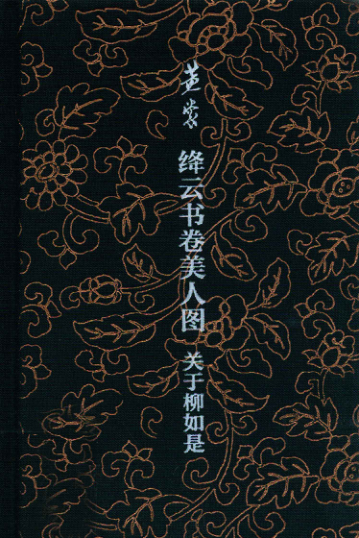 黄裳
绛云书卷美人图
关于柳如是